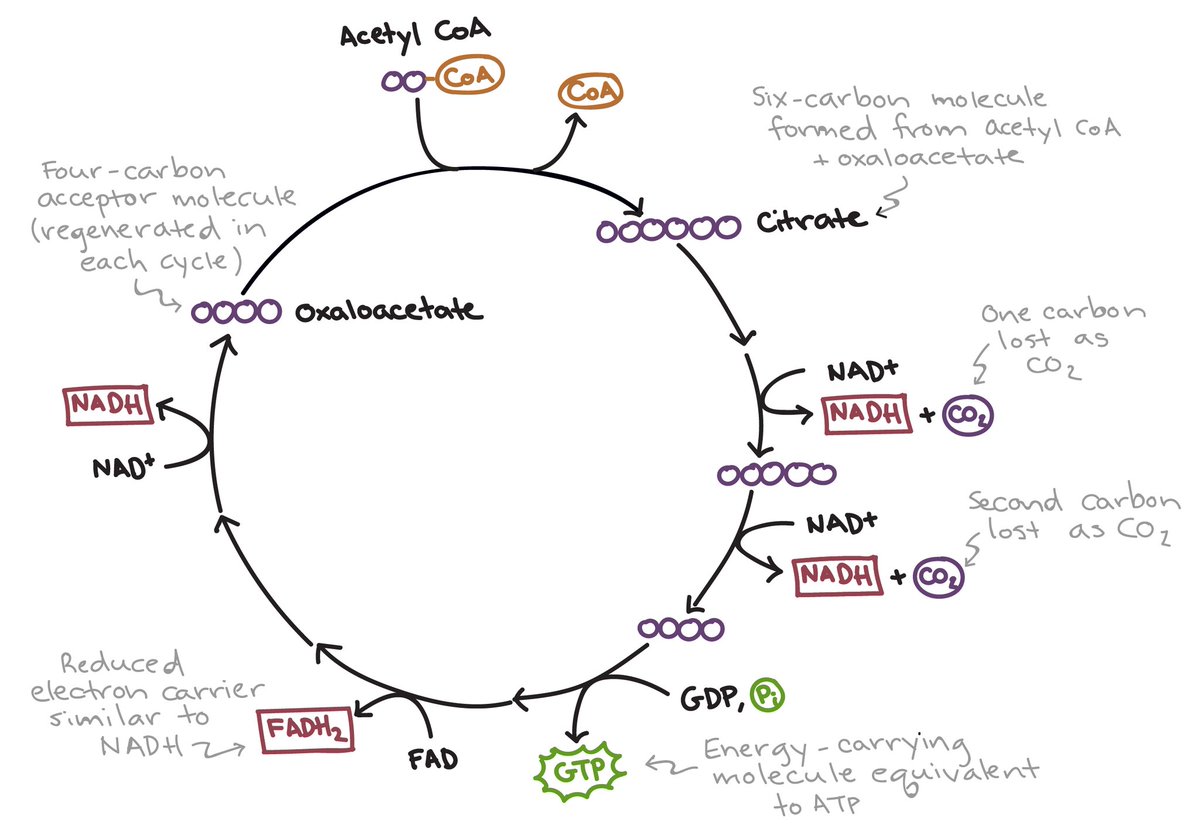 Acetyl CoA
CoA
CoA
Six-carbon molecule
formed from acetyl CoA
+ oxaloacetate
Citrate
Four-carbon
acceptor molecule
(regenerated in
each cycle)
Oxaloacetate
One carbon
lost as
CO₂
NAD+
NADH + CO₂
Second carbon
lost as CO₂
NAD+
NADH + CO₂
GDP, Pi
GTP
Energy-carrying
molecule equivalent
to ATP
FAD
FADH₂
Reduced
electron carrier
similar to
NADH
NAD⁺
NADH